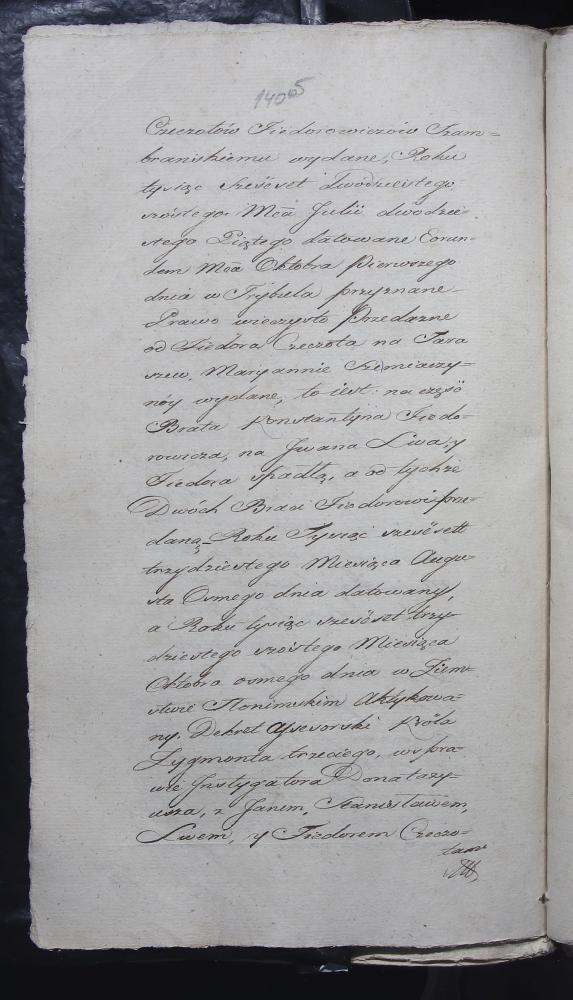 14065
Czeczotów Fiedorowiczów Tram-
braniskiemu wydane, Roku
tysiąc sześćset dwódziestego
szóstego Mca Julii dwódzie-
stego Piątego datowane Eorun-
dem Mca Oktobra pierwszego
dnia w Trybula przyznane
Prawo wieczysto Przedazne
od Fiedora Czeczota na Tara
szew. Maryannie Siemiaczy-
nóy wydane, to iest: na część
Brata Konstantyna Fiedo-
rowicza, na Jwana Lwa, y
Fiedora spadłą, a od tychże
Dwóch Braci Fiedorowi prze-
daną_ Roku Tysiąc sześćsett
trzydziestego Miesiąca Augu-
sta Osmego dnia datowany,
a Roku tysiąc sześćset trzy
dziestego szóstego Miesiąca
Oktobra osmego dnia w Ziem-
stwie Słonimskim Aktykowa-
ny. Dekret Assesorski Króla
Zygmonta trzeciego, w spra-
wie Jnstygatora Donatary-
usza, z Janem, Stanisławem,
Lwem, y Fiedorem Czeczo-
tami